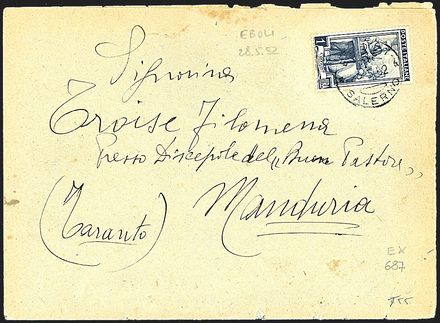 EBOLI
28.5.52
POSTE ITALIANE
SALERNO
Signorina
Troise Filomena
presso Discepole del „Buon Pastore„
Manduria
(Taranto)
EX
687